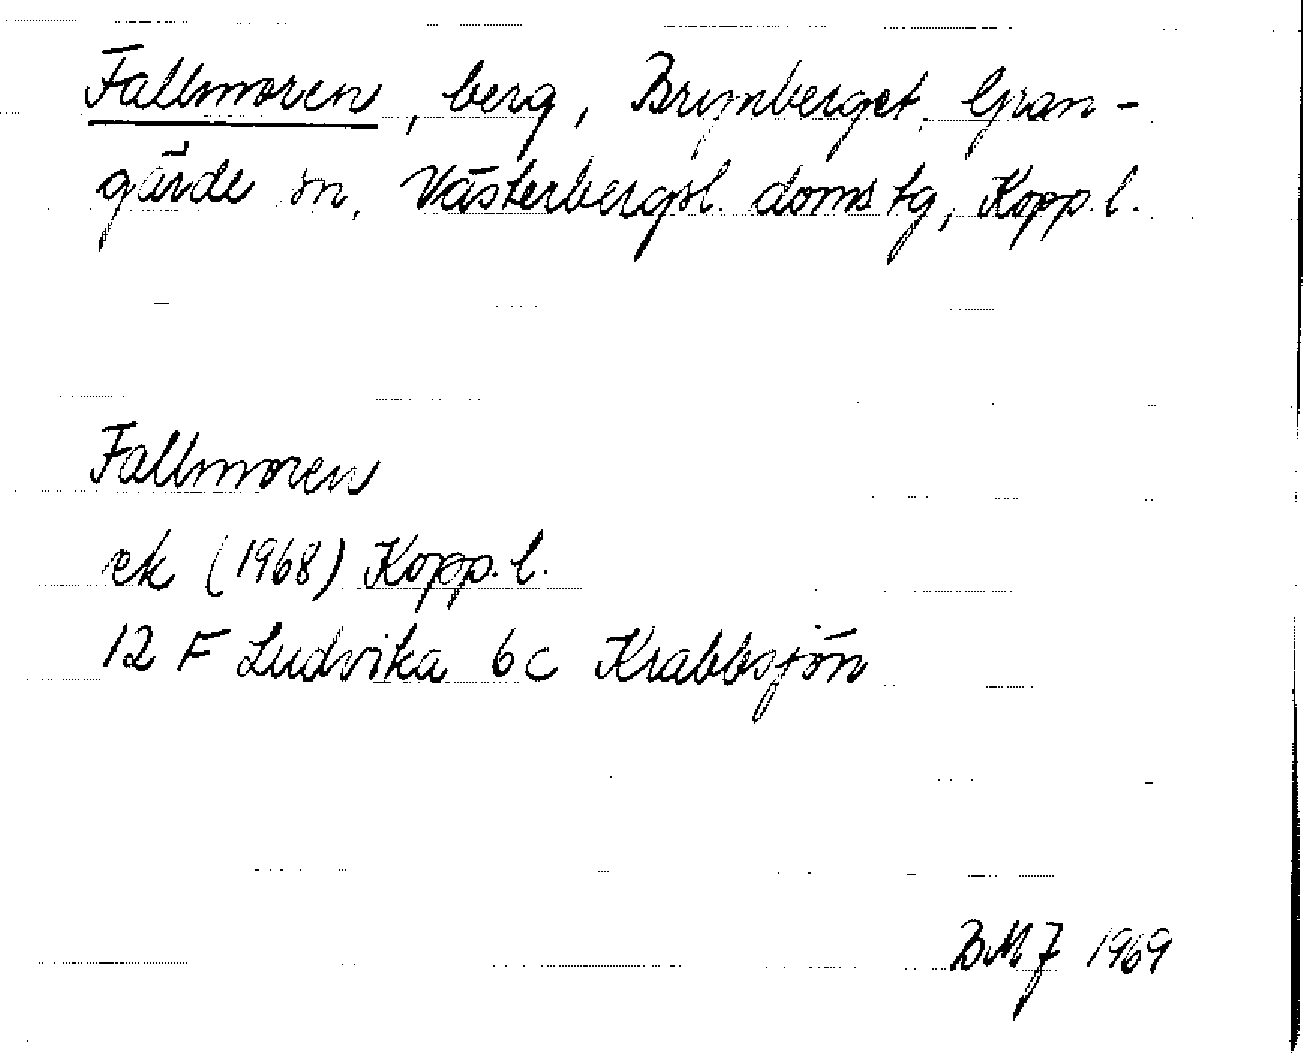 Fallmoren, berg, Brynberget, Gran-
gärde sn, Västerbergsl. doms tg, Kopp. l.
Fallmoren
ek (1968) Kopp. l.
12 F Ludvika 6c Krabbsjön
BMJ 1969